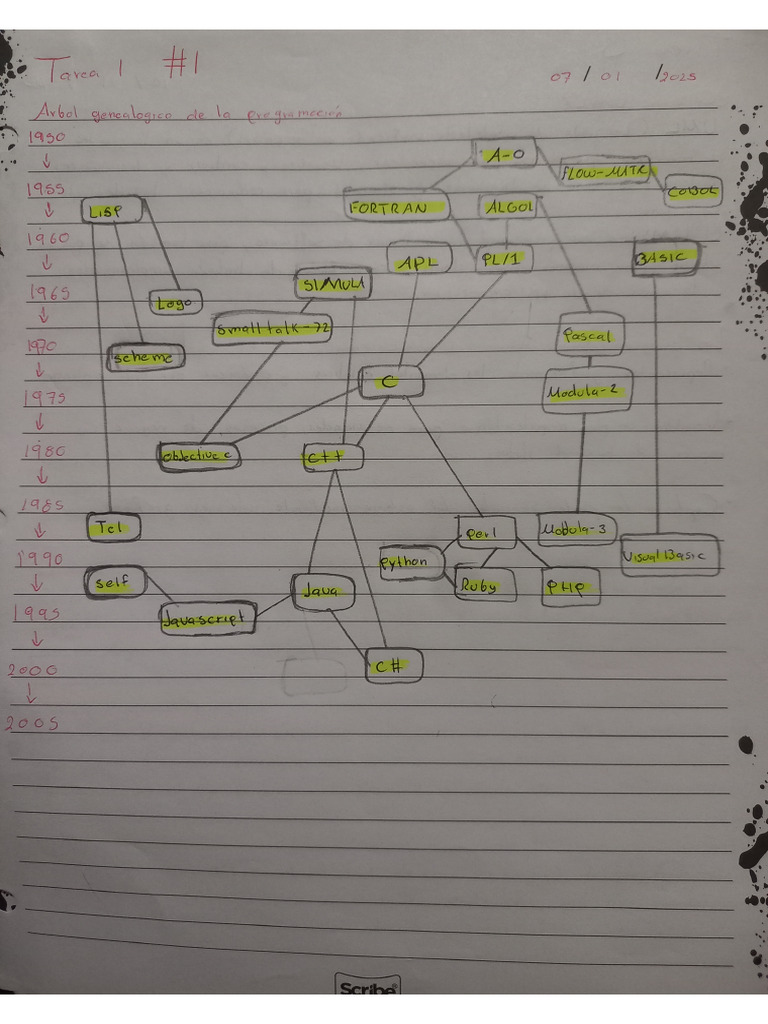 Tarea 1 #1
07/01/2025
Arbol genealogico de la programación
1950
A-0
FLOW-MATR
COBOL
1955
Lisp
FORTRAN
ALGOL
1960
APL
PL/1
BASIC
1965
SIMULA
Logo
Smalltalk-72
Pascal
1970
scheme
C
1975
Modula-2
1980
objective c
C++
1985
Tcl
perl
Modula-3
1990
python
Visual Basic
self
Java
Ruby
PHP
1995
Javascript
2000
C#
2005
Scribe